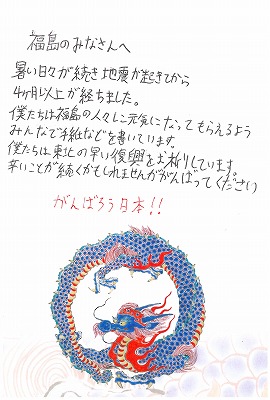 福島のみなさんへ
暑い日々が続き地震が起きてから
4ヶ月以上が経ちました。
僕たちは福島の人々に元気になってもらえるよう
みんなで手紙などを書いています。
僕たちは、東北の早い復興をお祈りしています
辛いことが続くかもしれませんががんばってください
がんばろう日本!!